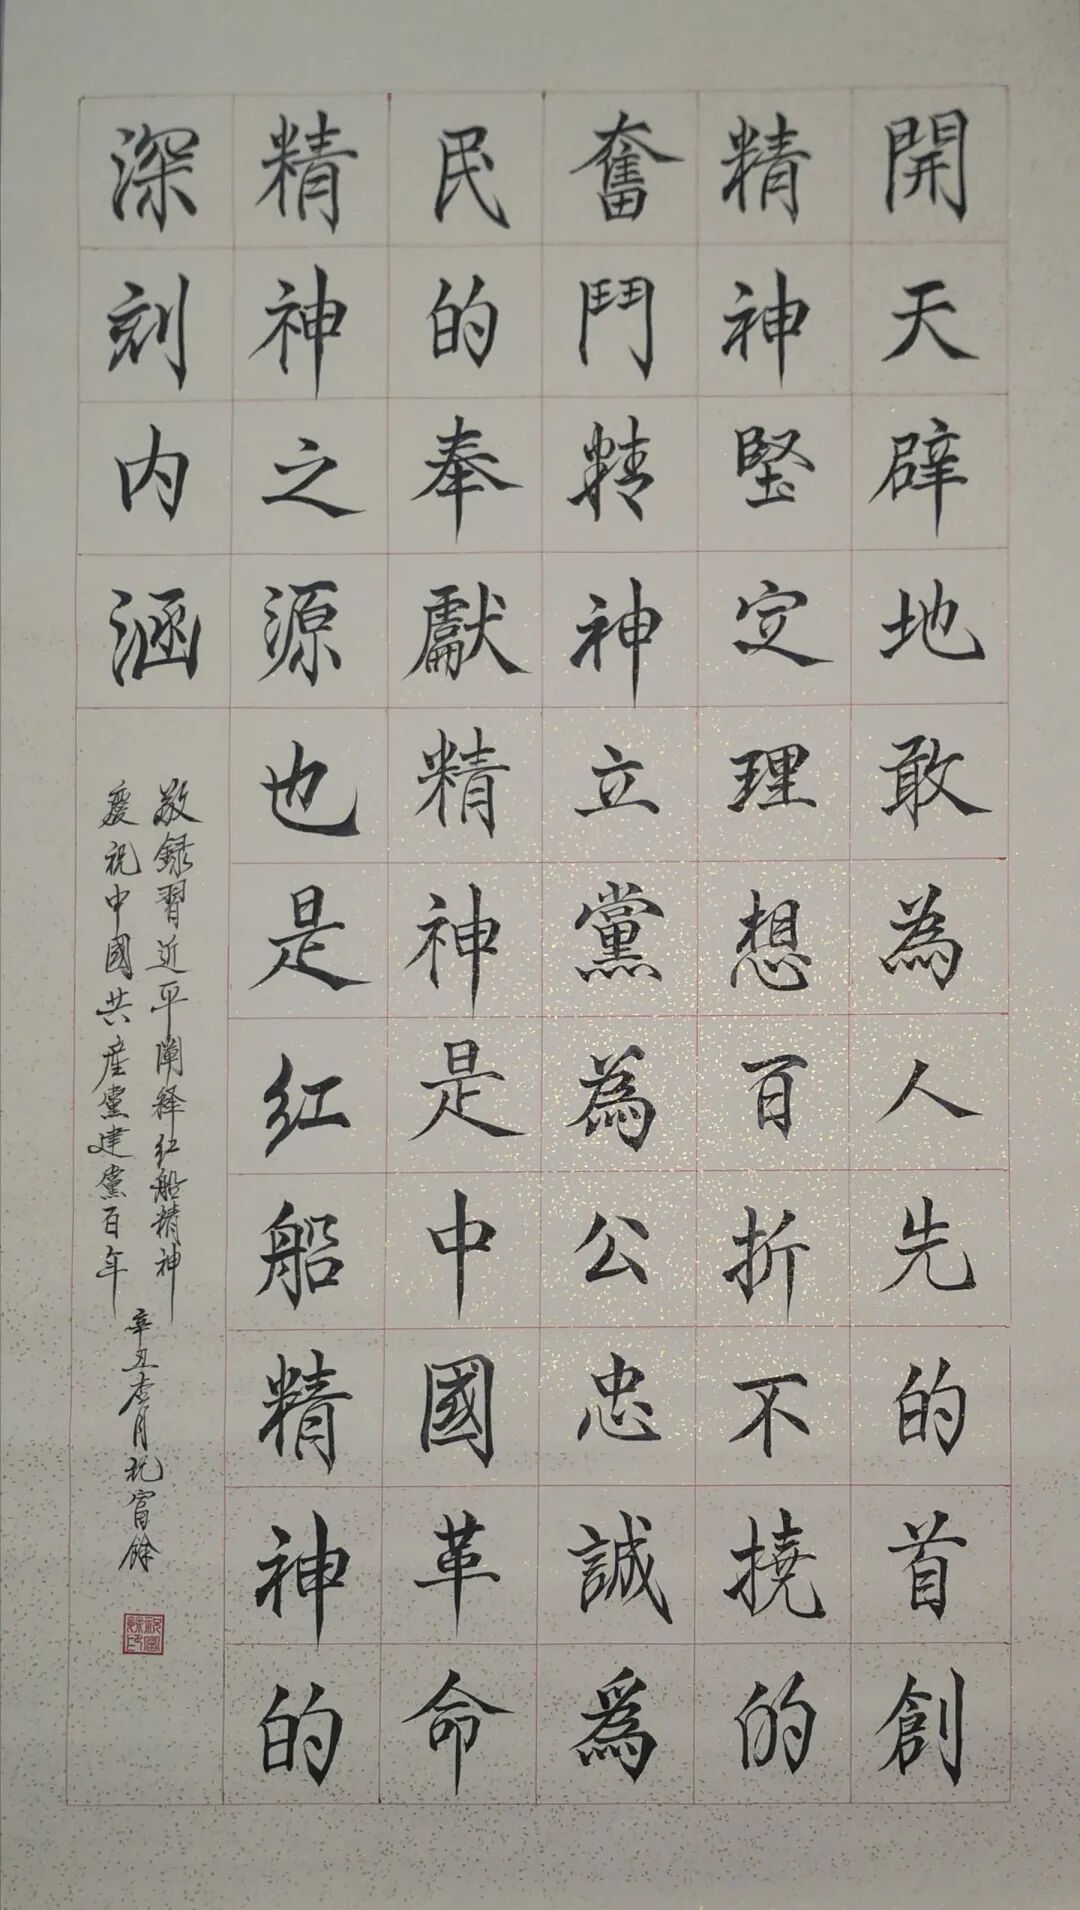 開天辟地敢為人先的首創
精神堅定理想百折不撓的
奮鬥精神立黨為公忠誠為
民的奉獻精神是中國革命
精神之源也是红船精神的
深刻内涵
敬録習近平阐释红船精神
慶祝中國共産黨建黨百年
辛丑杏月祝富餘